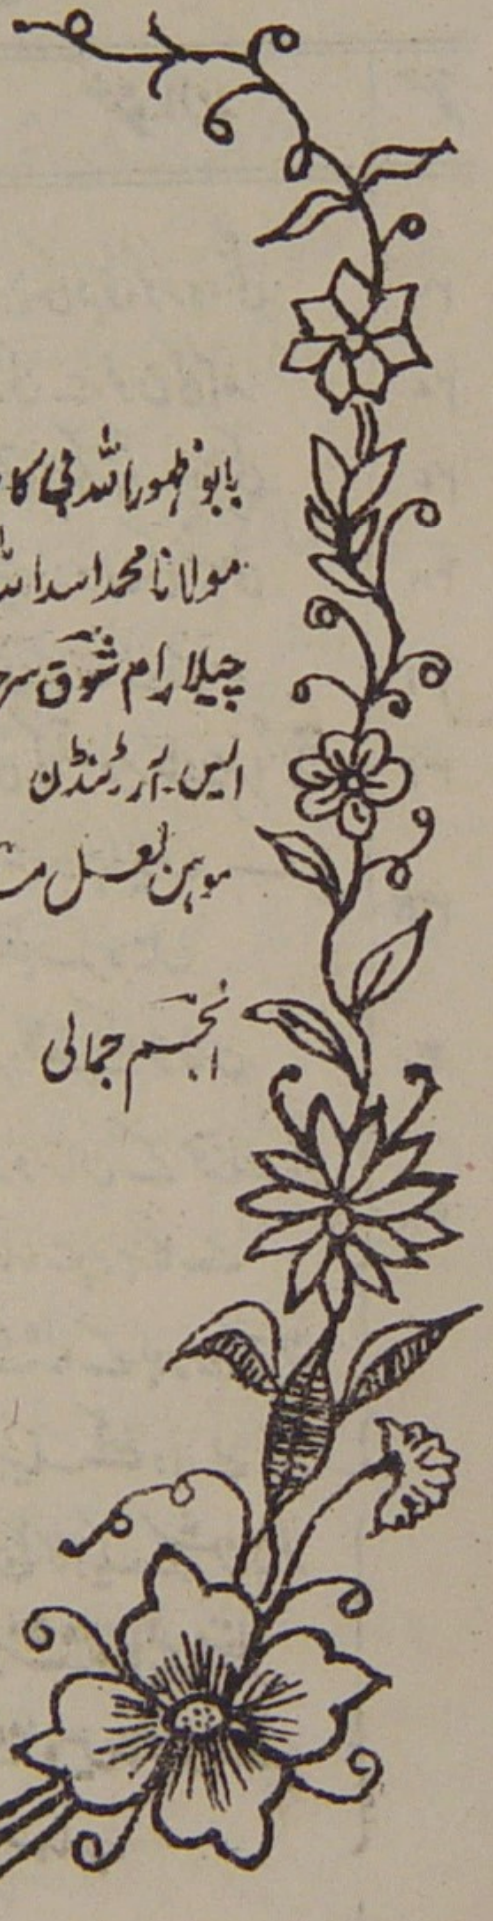 بابو ظہور اللہ
مولانا محمد اسد اللہ
چیلا رام شوق
ایس۔ آر۔ ٹنڈن
موہن لعل
انجم جمالی